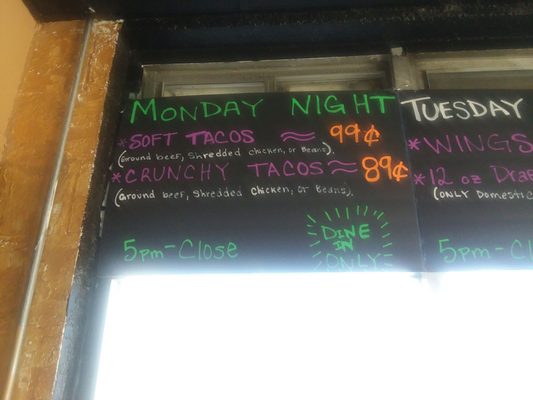 MONDAY NIGHT
*SOFT TACOS ≈ 99¢
(Ground beef, Shredded chicken, or Beans).
*CRUNCHY TACOS ≈ 89¢
(Ground beef, Shredded chicken, or Beans).
5pm-Close
DINE
IN
ONLY
TUESDAY
*WINGS
*12 oz
(ONLY Domestic
5pm-Cl